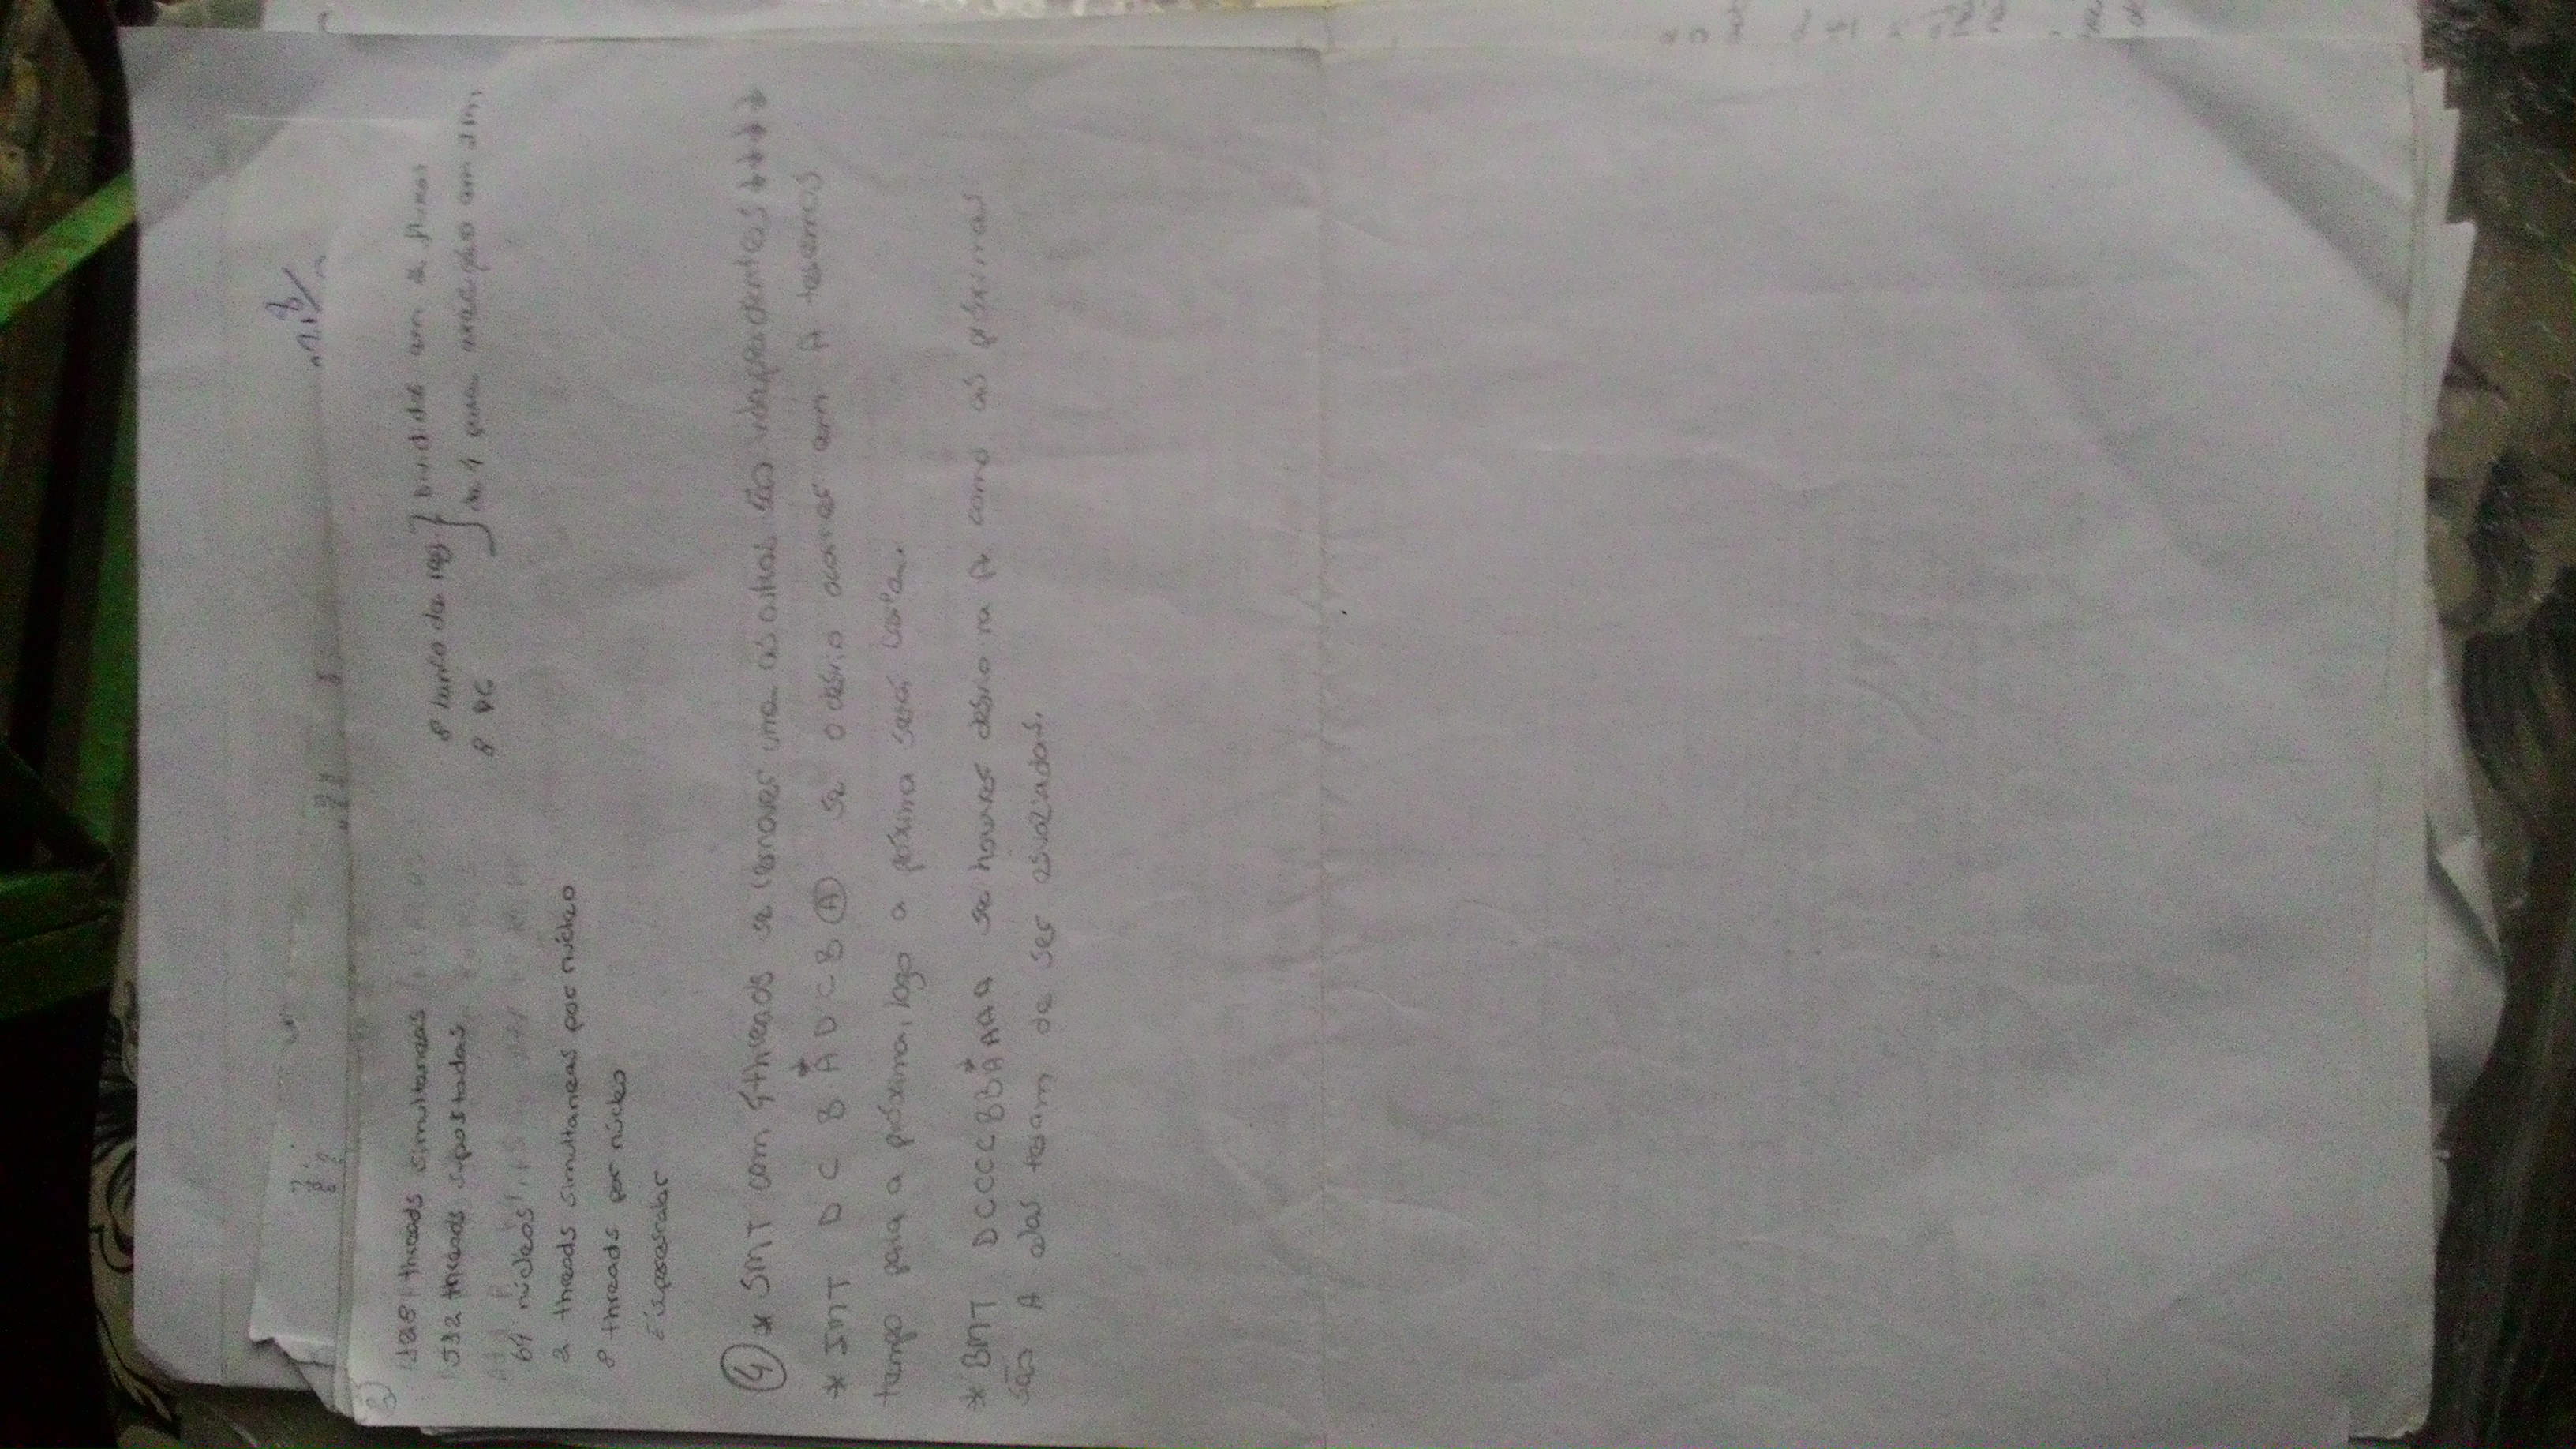 128 threads simultaneas
512 threads supostadas
64 núcleos
2 threads simultaneas por núcleo
8 threads por núcleo
É superescalar
8 banco de reg
8 PC
divididos em 2 fluxos
de 4 para execução em
④ * SMT com 4 threads se remover uma as outras são independentes
* IMT D C B A D C B Ⓐ se o desvio ocorrer em A teremos
tempo para a próxima, logo a próxima será certa.
* BMT D C C C C B B A A A A se houver desvio na A como as próximas
são A elas teram de ser esvaziadas.